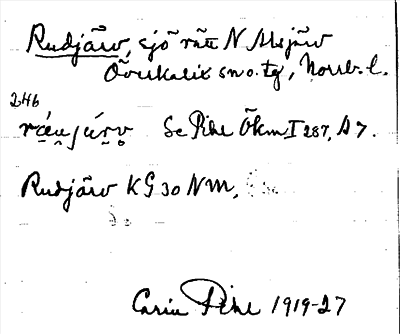 Rudjärv, sjö rätt N Alsjärv
Överkalix sn o. tg, Norrb. l.
246
Se Pihl Ökm I 287, A 7.
Rudjärv KG 30 NM,
Carin Pihl 1919-27